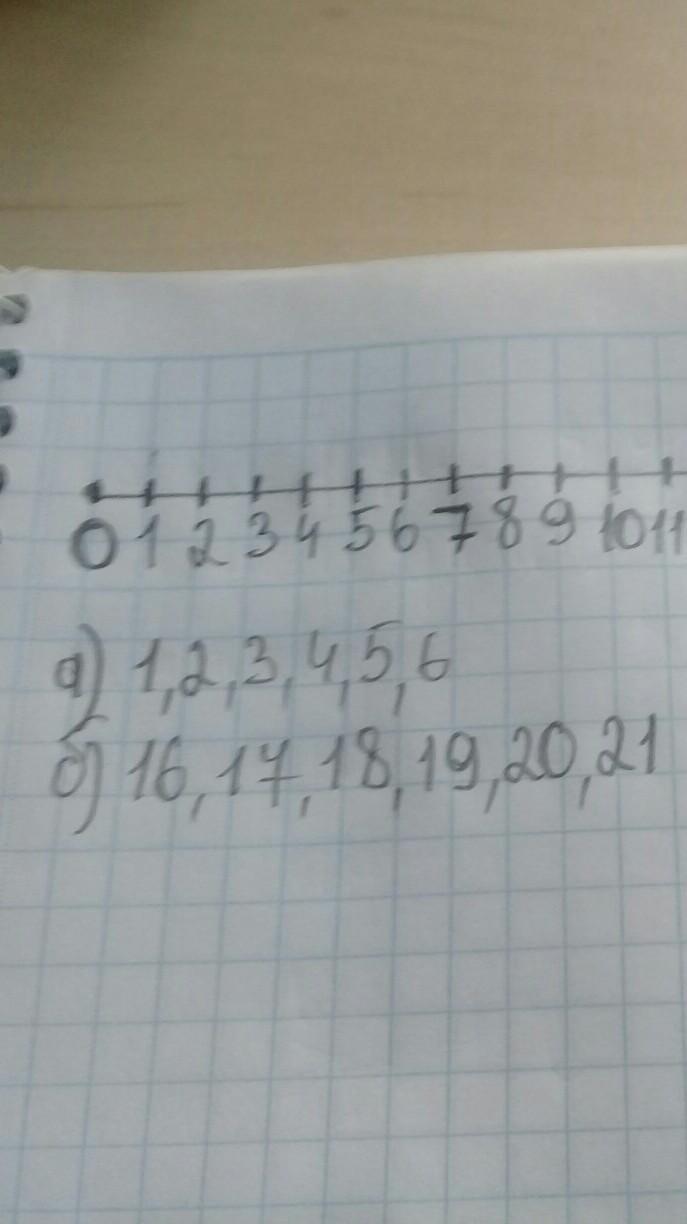 0 1 2 3 4 5 6 7 8 9 10 11
а) 1, 2, 3, 4, 5, 6
б) 16, 17, 18, 19, 20, 21